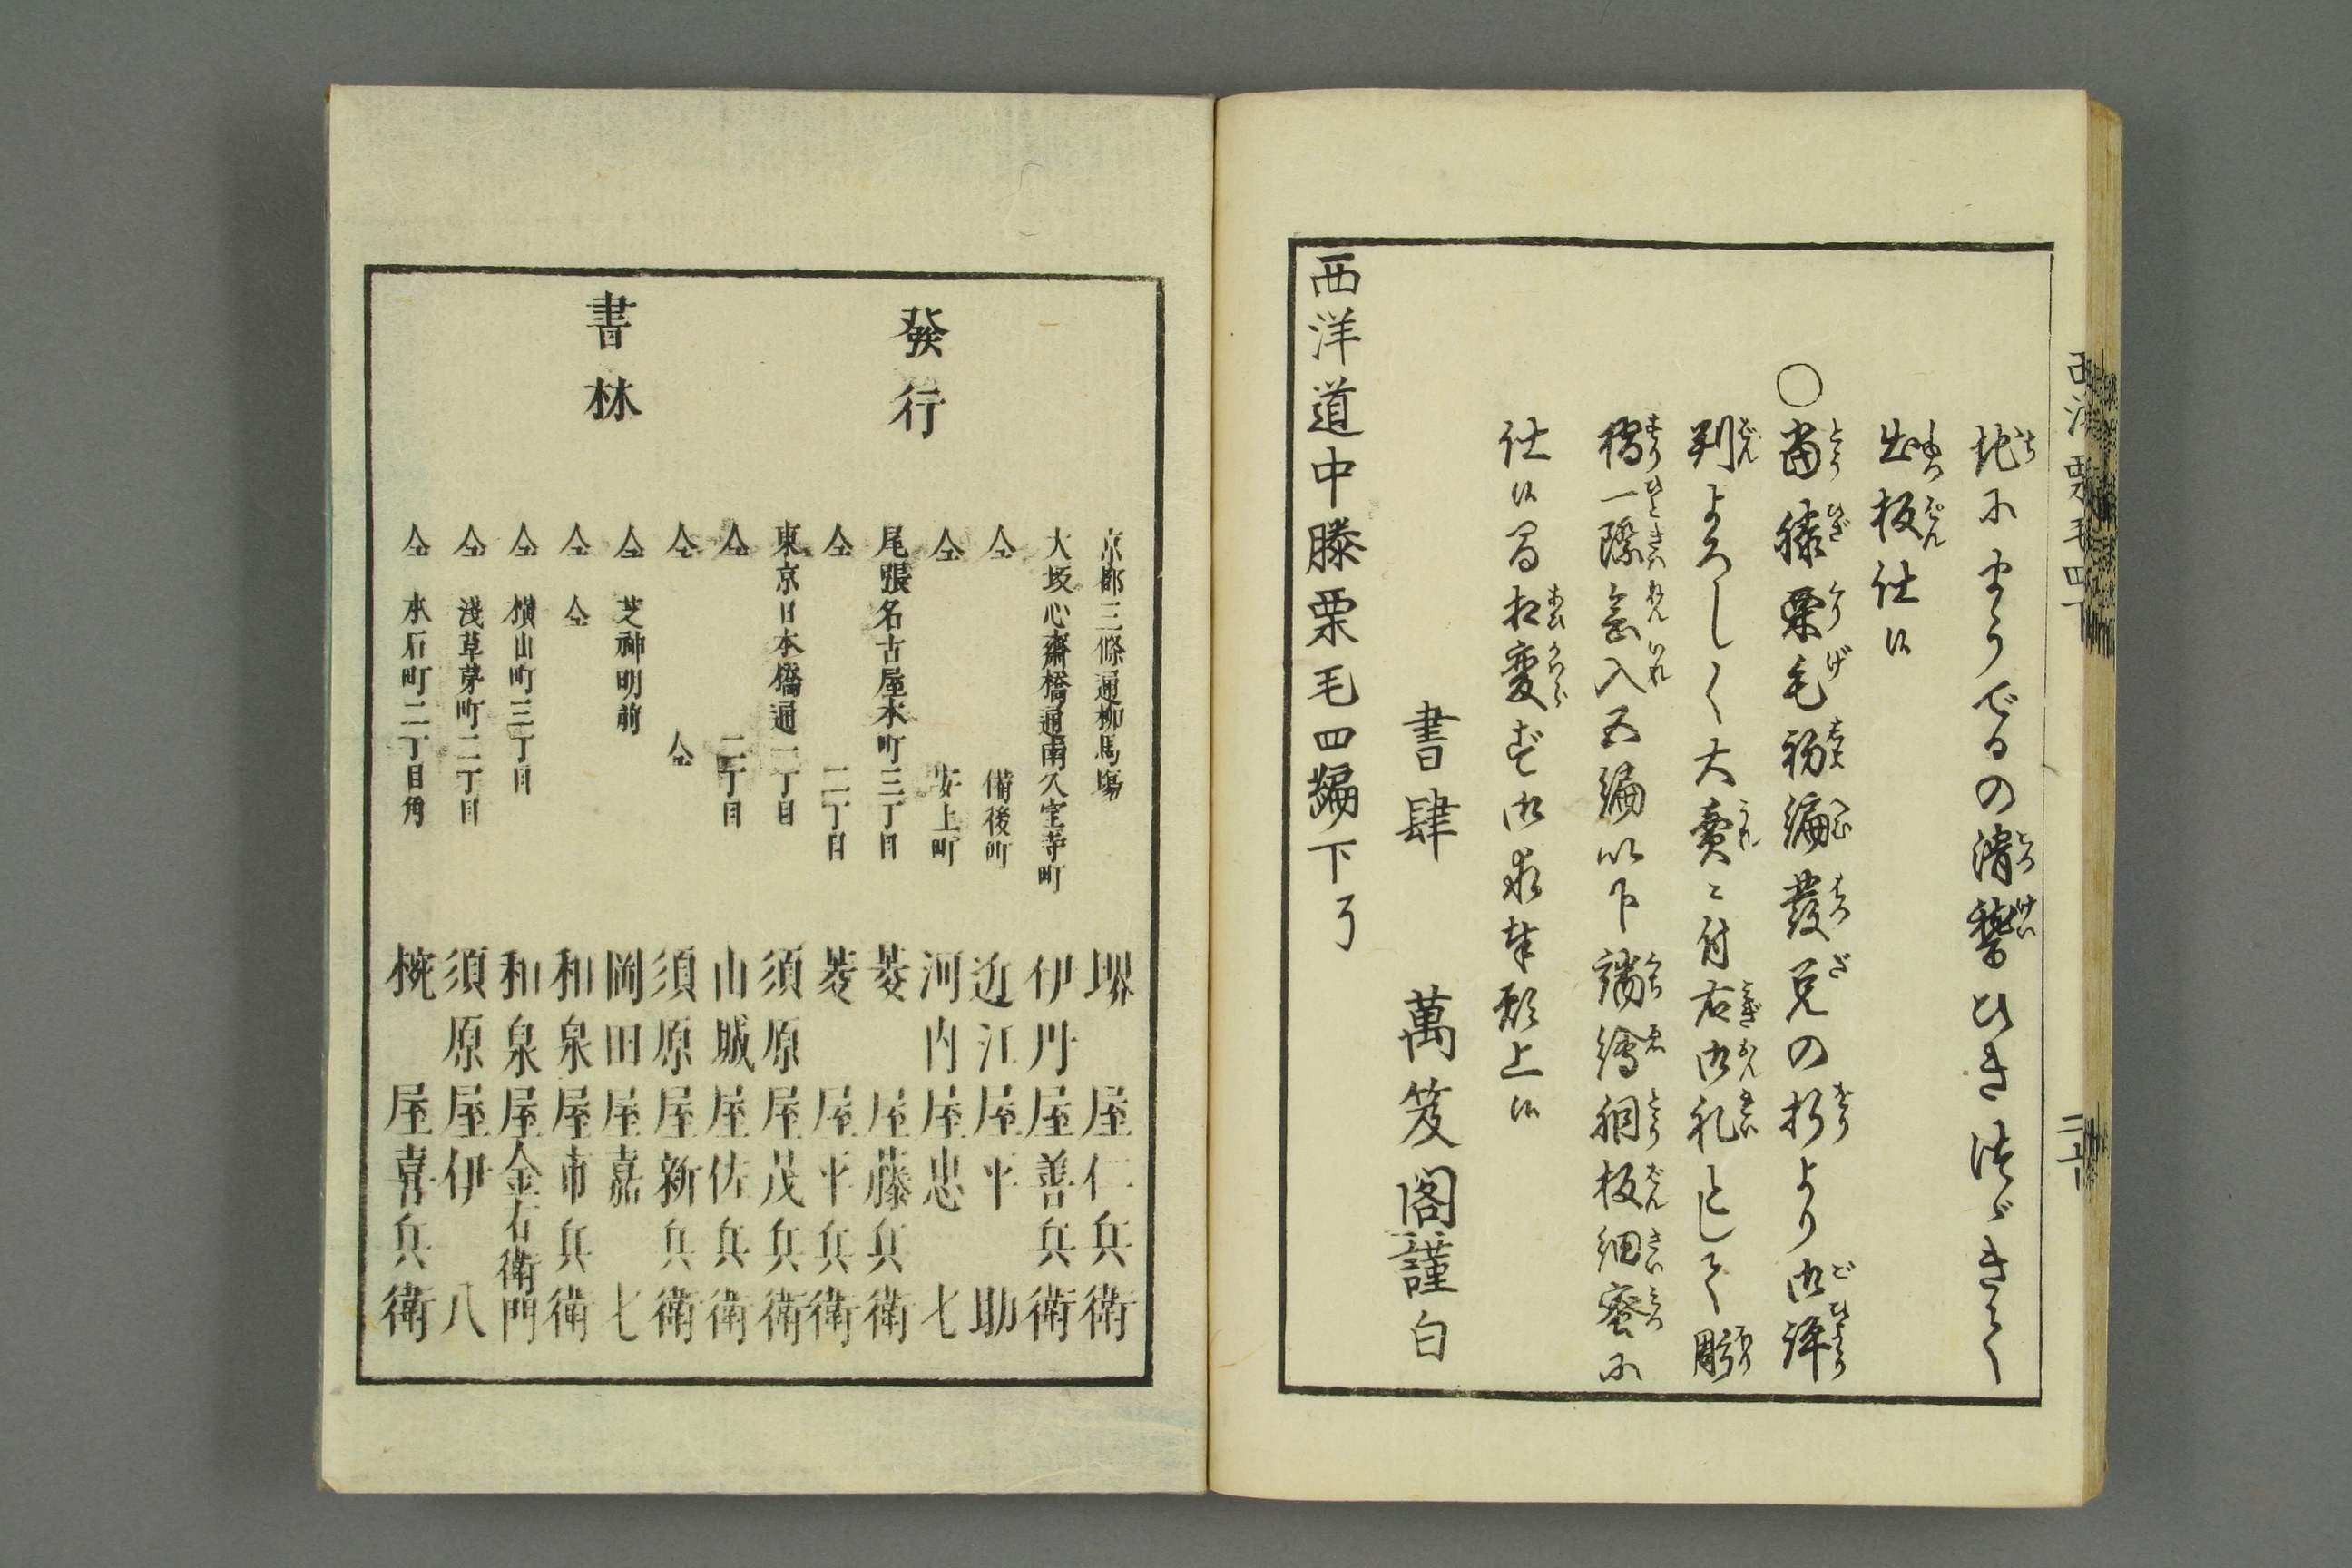 地にまうでるの滑稽ひきつゞきて
出板仕候
○当膝栗毛初編発兌の折より御評
判よろしく大売ニ付右御礼として彫
摺一際念入五編以下誦絵組板細密に
仕候間相変ず御求奉願上候
書肆 萬笈閣謹白
西洋道中膝栗毛四編下了
發行
書林
京都三條通柳馬場 堺屋仁兵衛
大坂心齋橋通南久宝寺町 伊丹屋善兵衛
仝 備後町 近江屋平助
仝 安土町 河内屋忠七
尾張名古屋本町三丁目 菱屋藤兵衛
仝 二丁目 菱屋平兵衛
東京日本橋通一丁目 須原屋茂兵衛
仝 二丁目 山城屋佐兵衛
仝 仝 須原屋新兵衛
仝 芝神明前 岡田屋嘉七
仝 仝 和泉屋市兵衛
仝 横山町三丁目 和泉屋金右衛門
仝 淺草茅町二丁目 須原屋伊八
仝 本石町二丁目角 椀屋喜兵衛